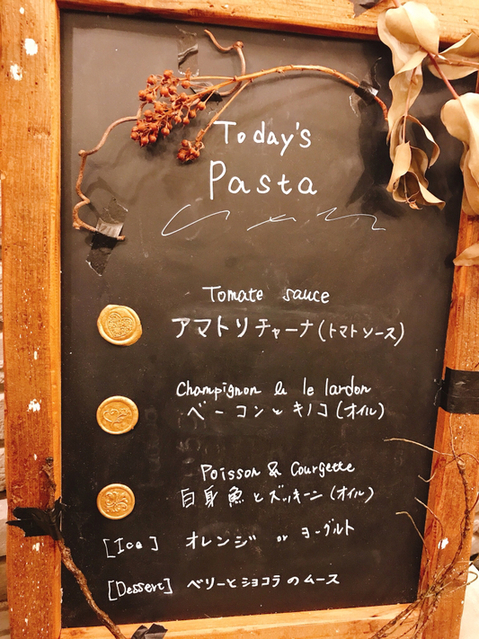 Today's
Pasta
Tomate sauce
アマトリチャーナ(トマトソース)
Champignon & le lardon
ベーコンとキノコ(オイル)
Poisson & Courgette
白身魚とズッキーニ(オイル)
[Ice] オレンジ or ヨーグルト
[Dessert] ベリーとショコラのムース